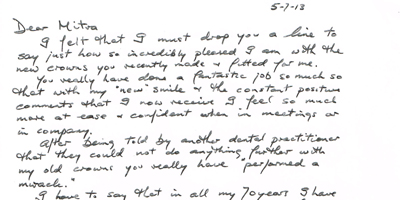 5-7-13
Dear Mitra
I felt that I must drop you a line to
say just how so incredibly pleased I am with the
new crowns you recently made & fitted for me.
You really have done a fantastic job so much so
that with my "new" smile & the constant positive
comments that I now receive I feel so much
more at ease & confident when in meetings or
in company.
After being told by another dental practitioner
that they could not do anything further with
my old crowns you really have "performed a
miracle."
I have to say that in all my 70 years I have